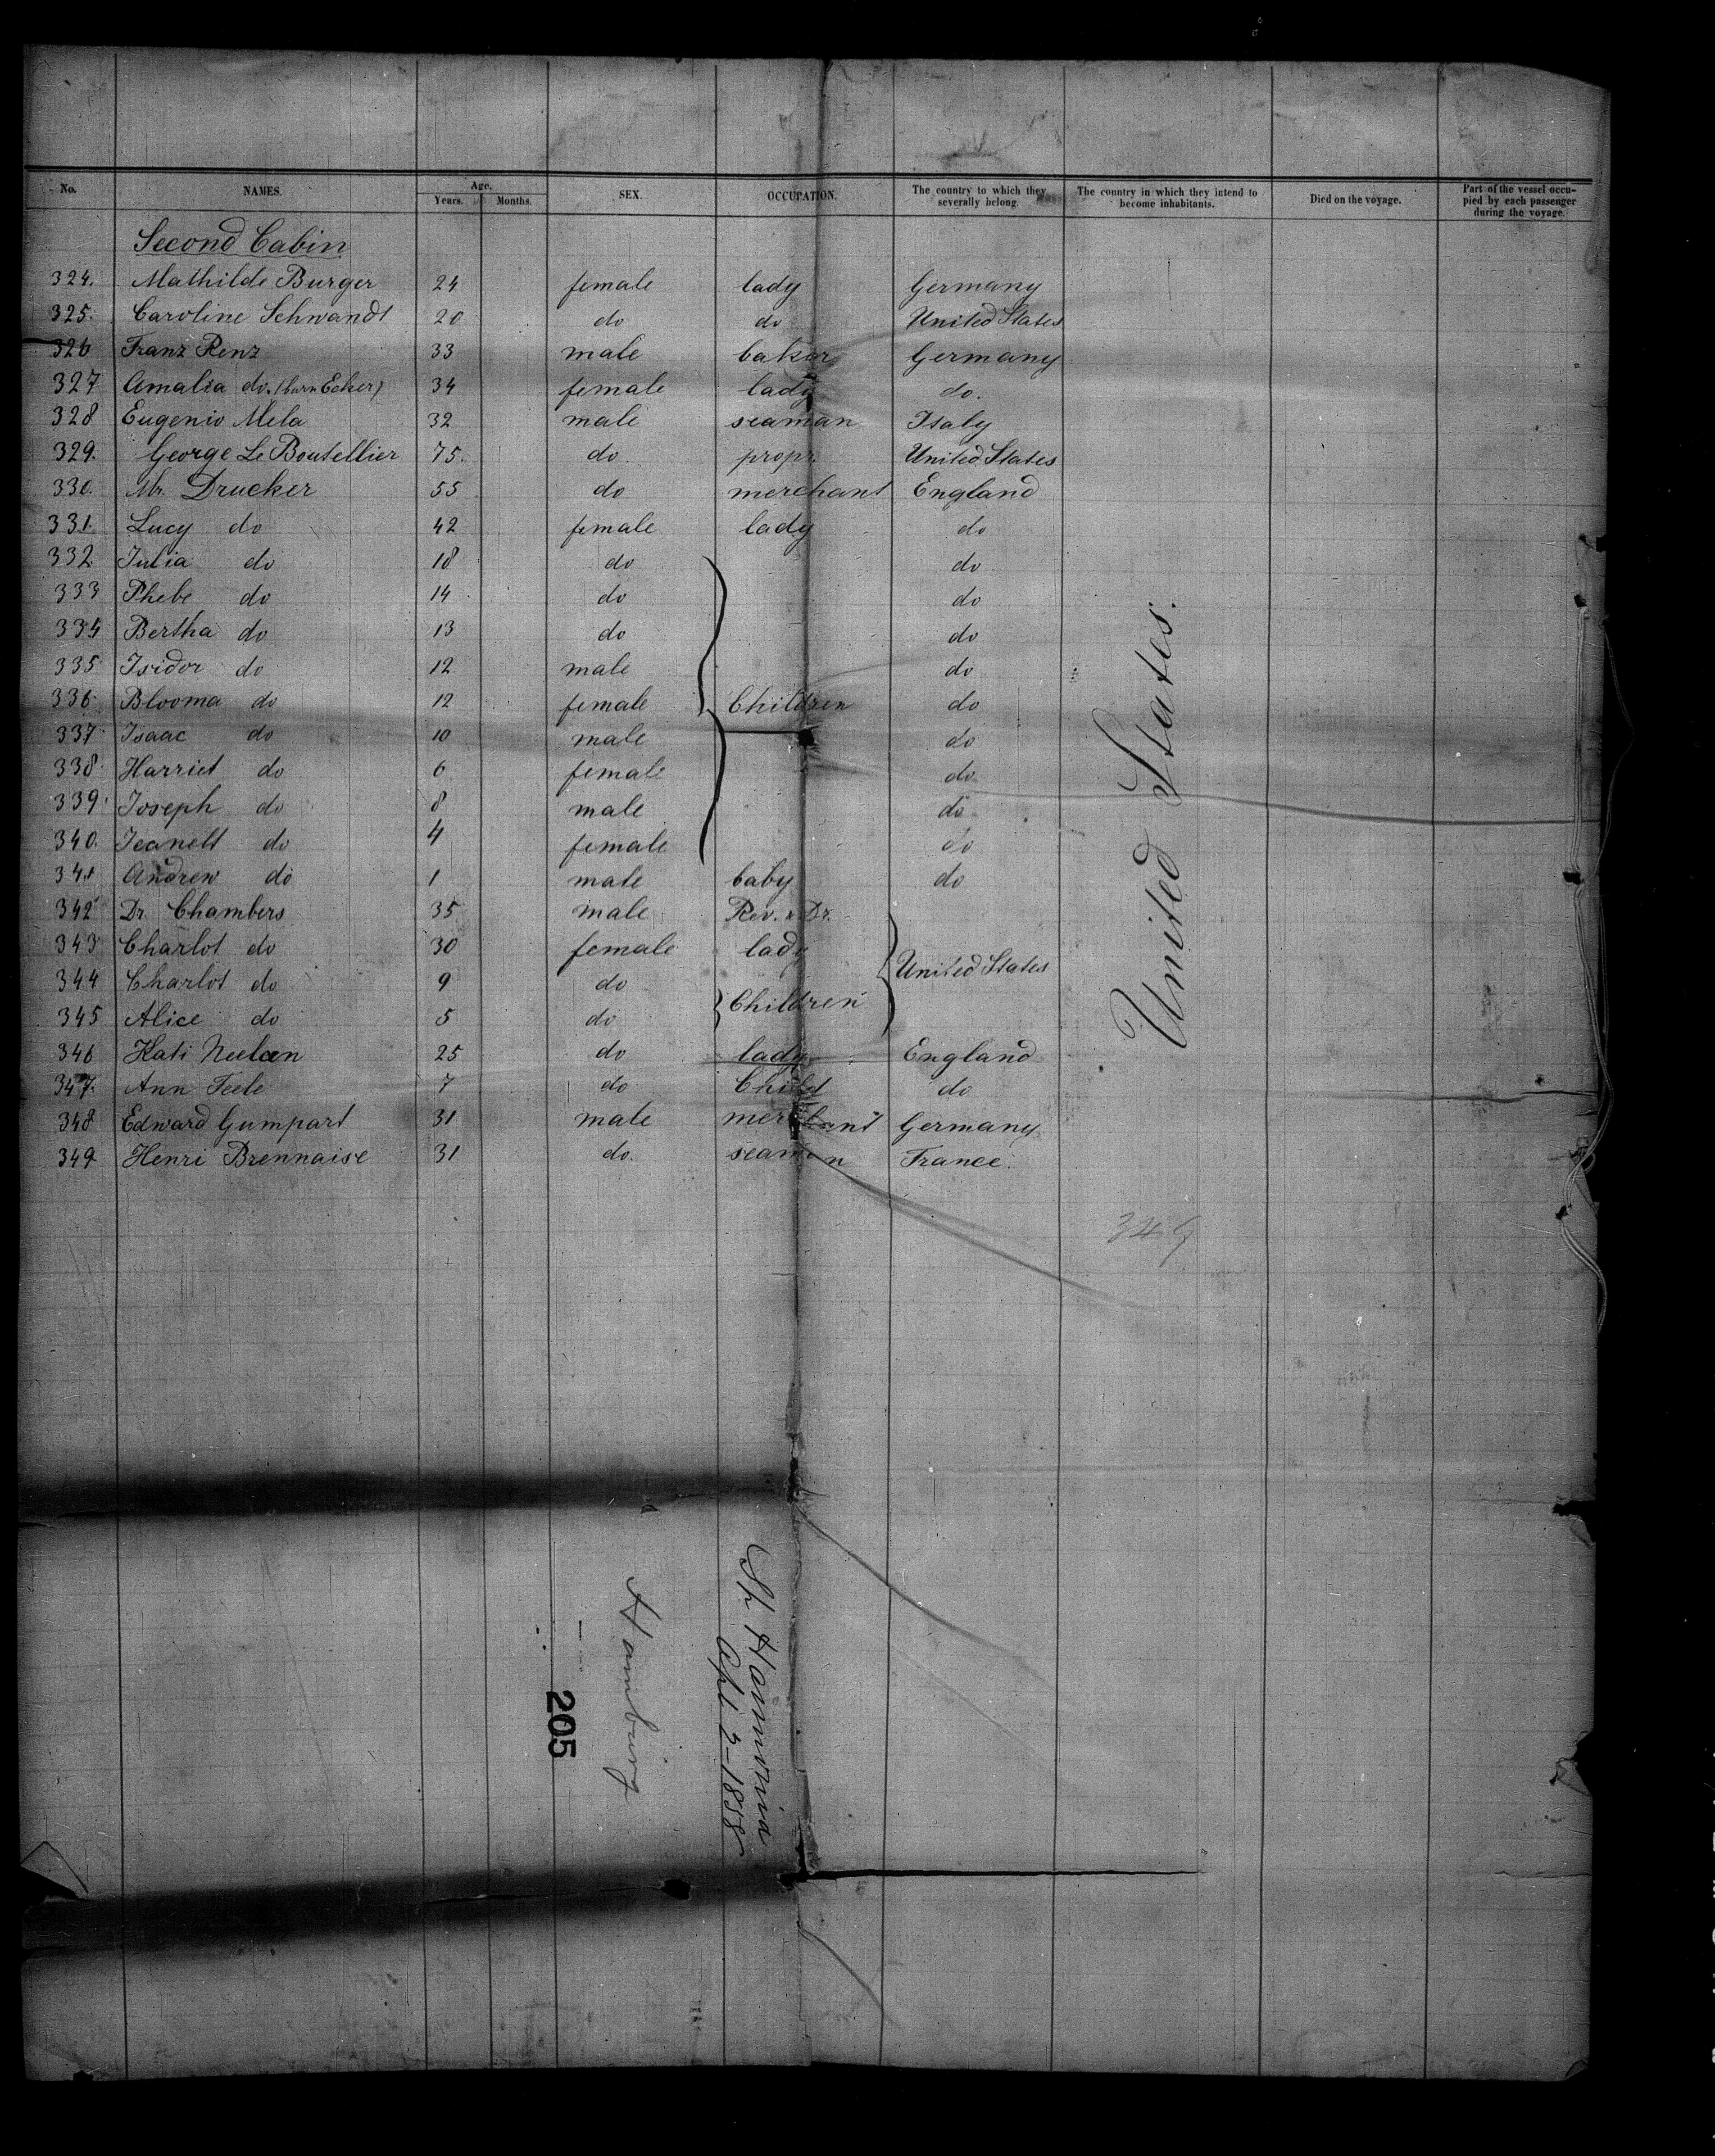 No. NAMES. Age. Years. Months. SEX. OCCUPATION. The country to which they severally belong. The country in which they intend to become inhabitants. Died on the voyage. Part of the vessel occupied by each passenger during the voyage.
Second Cabin
324. Mathilde Burger 24 female lady Germany
325. Caroline Schwandt 20 do do United States
326 Franz Renz 33 male baker Germany
327 Amalia do. (born Ecker) 34 female lady do.
328 Eugenio Mela 32 male seaman Italy
329. George Le Boutellier 75. do. propr. United States
330. Mr. Drucker 55 do merchant England
331. Lucy do 42 female lady do
332 Julia do 18 do do
333 Phebe do 14 do do
334 Bertha do 13 do do
335 Isidor do 12 male do
336 Blooma do 12 female Children do
337 Isaac do 10 male do
338 Harriet do 6 female do
339 Joseph do 8 male do
340. Jeanett do 4 female do
341 Andrew do 1 male baby do
342 Dr. Chambers 35 male Rev. & Dr.
343 Charlot do 30 female lady United States
344 Charlot do 9 do Children
345 Alice do 5 do
346 Kati Neelan 25 do lady England
347. Ann Teele 7 do Child do
348 Edward Gumpart 31 male merchant Germany
349 Henri Brennaise 31 do. seaman France.
United States.
349
Hammonia
Apl. 2-1858
Hamburg
205